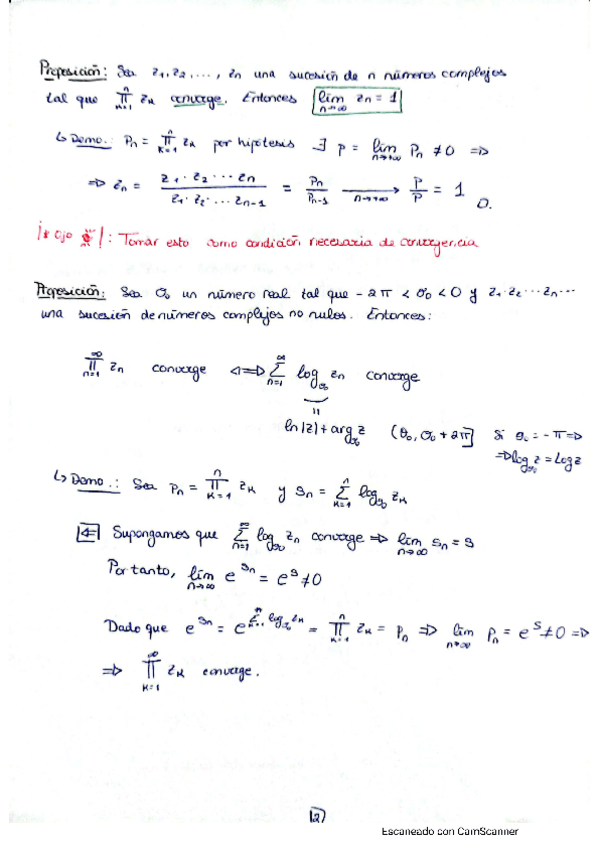 Proposición: Sea z₁, z₂, ..., zₙ una sucesión de n números complejos
tal que ∏ₖ₌₁ⁿ zₖ converge. Entonces lim_{n→∞} zₙ = 1
↳ Demo.: Pₙ = ∏ₖ₌₁ⁿ zₖ por hipótesis ∃ p = lim_{n→+∞} Pₙ ≠ 0 ⇒
⇒ zₙ = (z₁ · z₂ · ... zₙ)/(z₁ · z₂ · ... zₙ₋₁) = Pₙ/Pₙ₋₁ →_{n→+∞} P/P = 1
¡* Ojo !: Tomar esto como condición necesaria de convergencia
Proposición: Sea θ₀ un número real tal que -2π < θ₀ < 0 y z₁ · z₂ ... zₙ ...
una sucesión de números complejos no nulos. Entonces:
∏ₙ₌₁^∞ zₙ converge ⇔ ∑ₙ₌₁^∞ log_{θ₀} zₙ converge
ln|z| + arg_{θ₀} z (θ₀, θ₀ + 2π] Si θ₀ = -π ⇒
⇒ log_{θ₀} z = Log z
↳ Demo.: Sea Pₙ = ∏ₖ₌₁ⁿ zₖ y sₙ = ∑ₖ₌₁ⁿ log_{θ₀} zₖ
⇐ Supongamos que ∑ₙ₌₁^∞ log_{θ₀} zₙ converge ⇒ lim_{n→∞} sₙ = s
Por tanto, lim_{n→∞} e^{sₙ} = e^s ≠ 0
Dado que e^{sₙ} = e^{∑ₖ₌₁ⁿ log_{θ₀} zₖ} = ∏ₖ₌₁ⁿ zₖ = Pₙ ⇒ lim_{n→∞} Pₙ = e^s ≠ 0 ⇒
⇒ ∏ₖ₌₁^∞ zₖ converge.
2
Escaneado con CamScanner